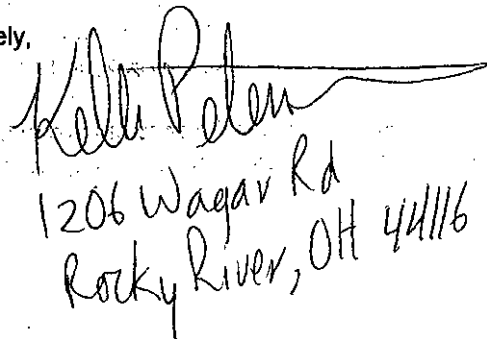 ely,
Kelli
1206 Wagar Rd
Rocky River, OH 44116